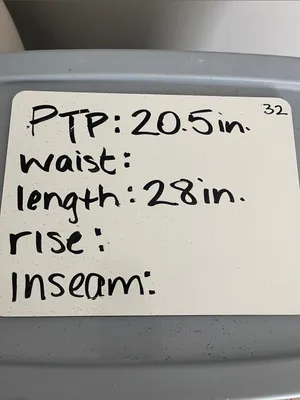 32
PTP: 20.5in.
waist:
length: 28in.
rise:
Inseam: